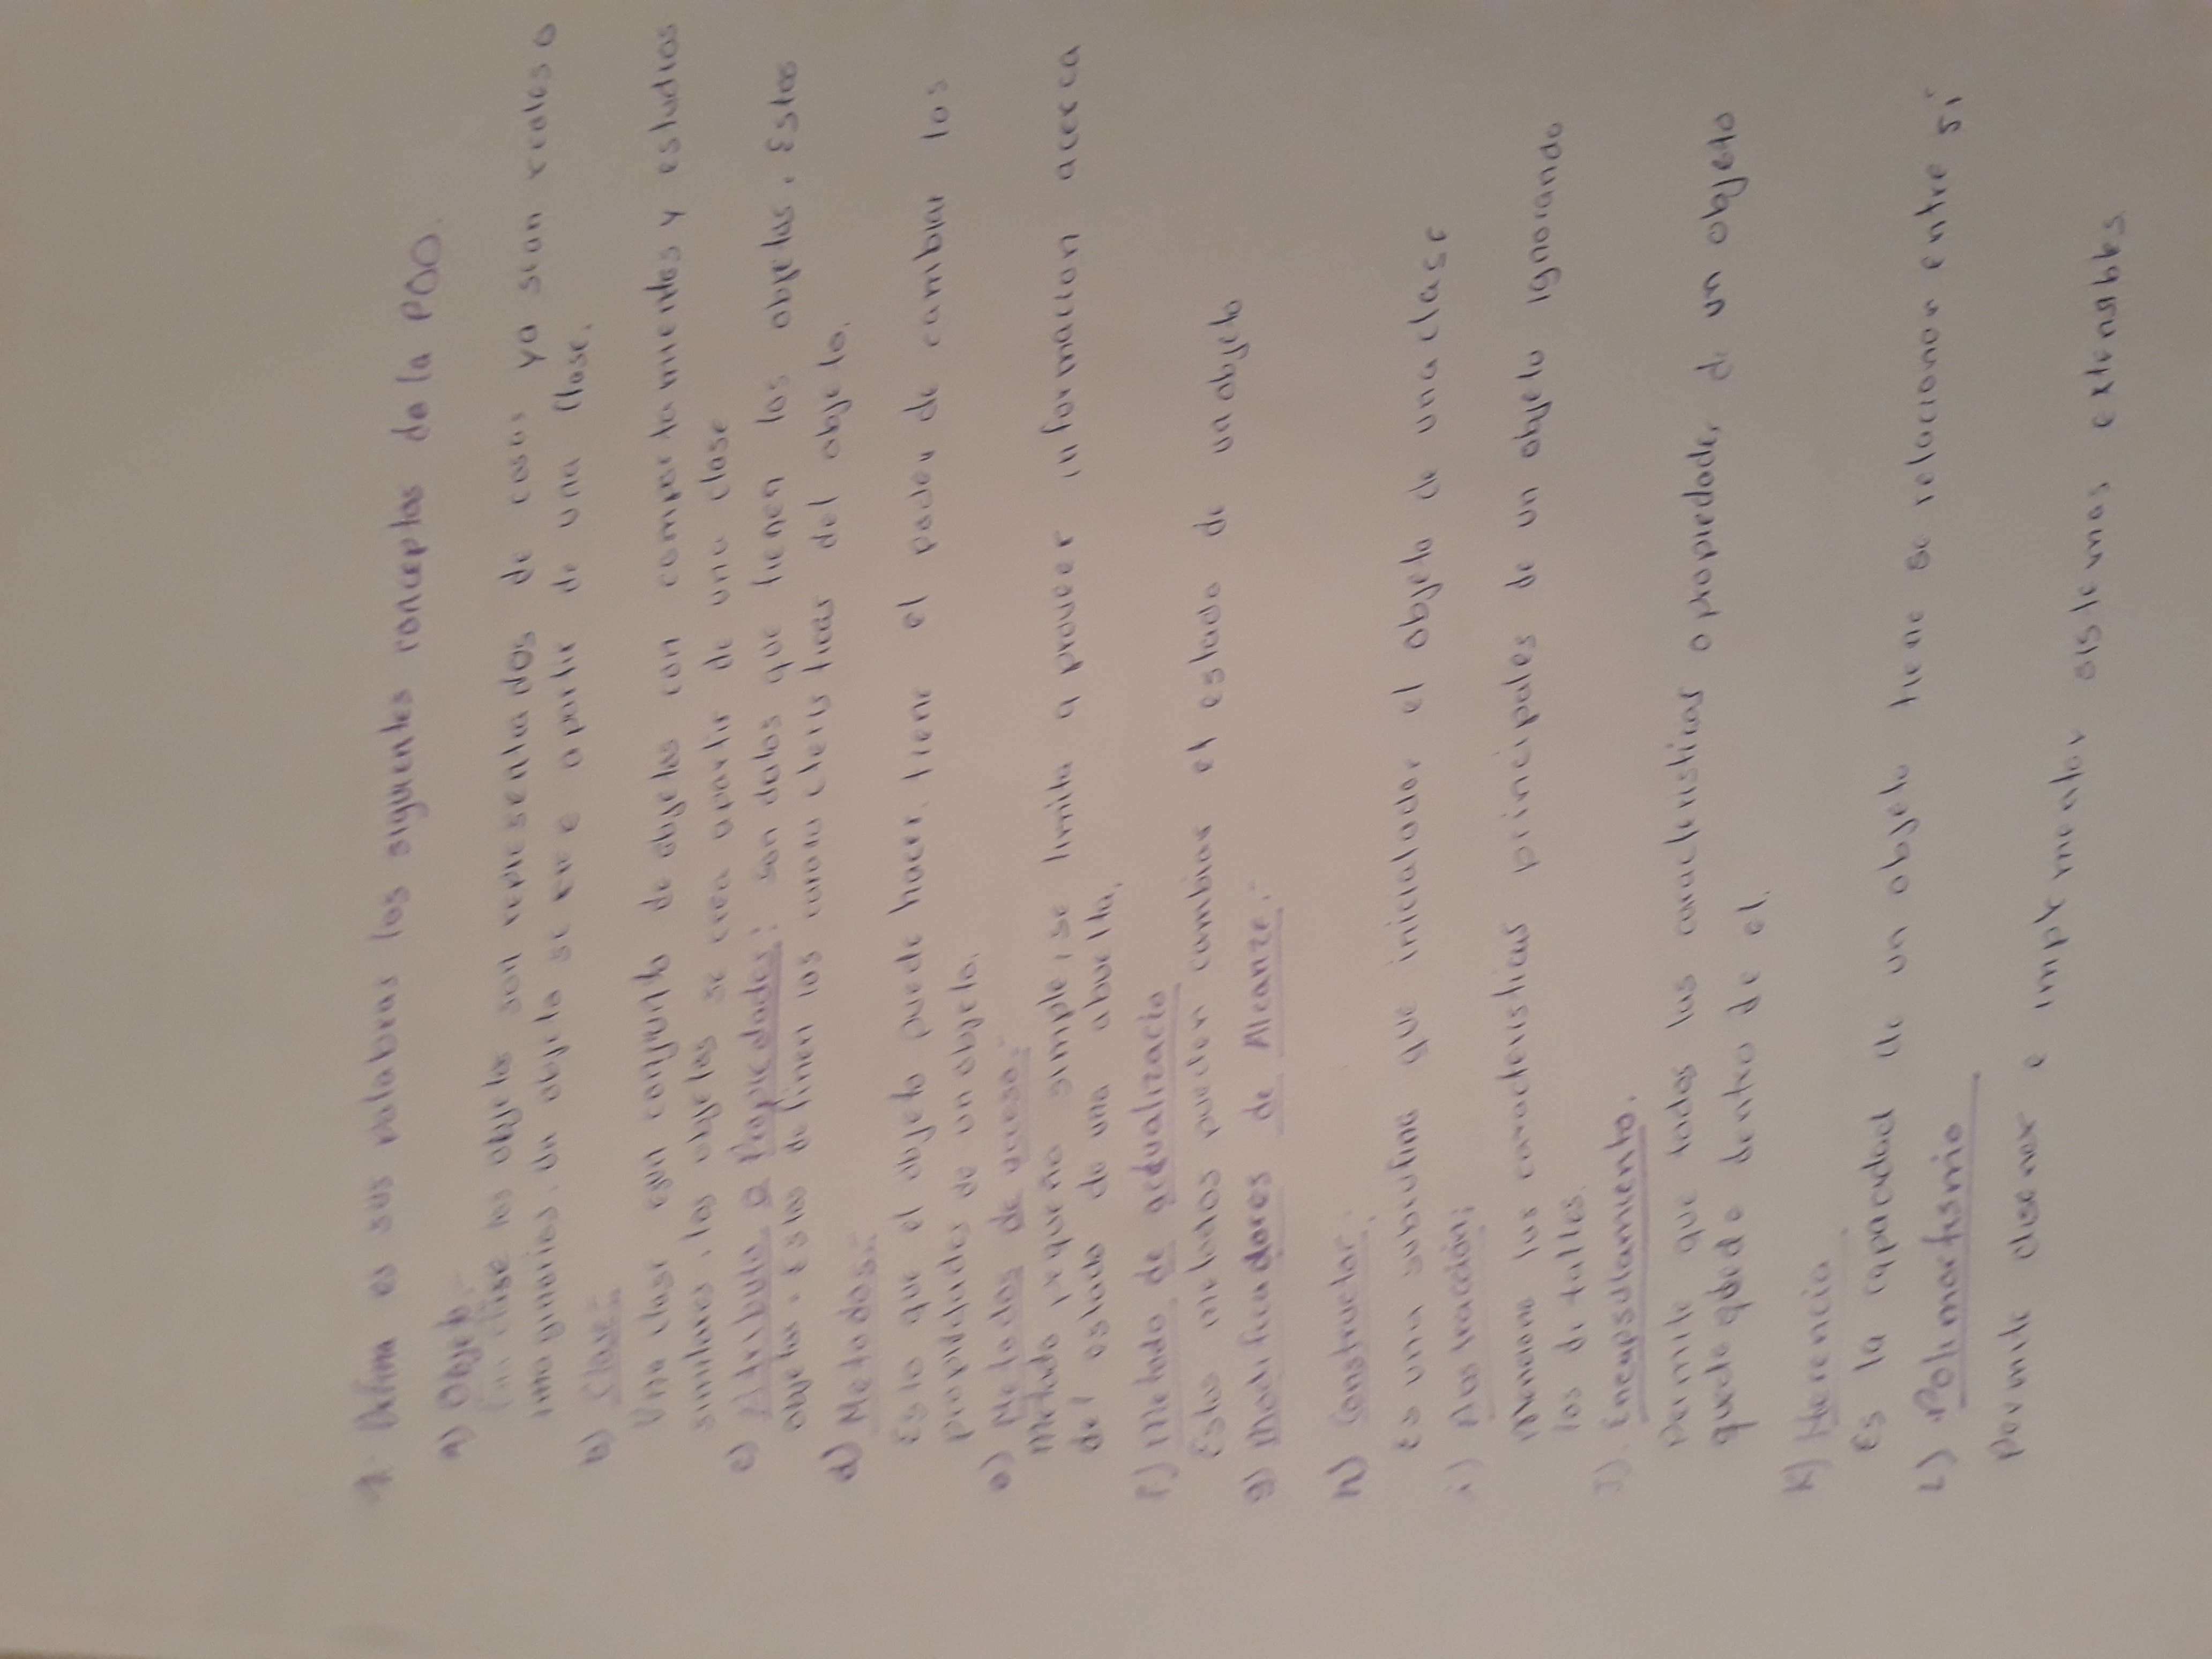 1. Defina es sus palabras los siguientes conceptos de la POO.
a) Objeto.-
clase los objetos son representados de cosas ya sean reales o
imaginarios. Un objeto se cree apartir de una Clase.
b) Clase:-
Una clase esun conjunto de objetos con comportamientos y estudios
similares, los objetos se crea apartir de una clase
c) Atributo o Propiedades: son datos que tienen los objetos. Estos
objetos. Estos definen las del objeto.
d) Metodos:-
Es lo que el objeto puede hacer. tiene el poder de cambiar los
propiedades de un objeto.
e) Metodos de acceso.-
Metodo pequeño simple, se limita a proveer informacion acerca
del estado de una abuelta,
f) Metodo de actualizacio
Estos metodos pueden cambiar el estado de un objeto
g) Modificadores de Alcanze.-
h) Constructor.
Es una subrutina que inicialador el objeto de una clase
i) Abstracción;
Menciona las caracteristicas principales de un objeto ignorando
los detalles.
J). Encapsulamiento.
Permite que todos las caracteristicas o propiedades de un objeto
quede quede dentro de el.
K) Herencia
Es la capacidad de un objeto tiene se relacionar entre sí
L) Polimorfismo
Permite disener e implmentor sistemas extensibles